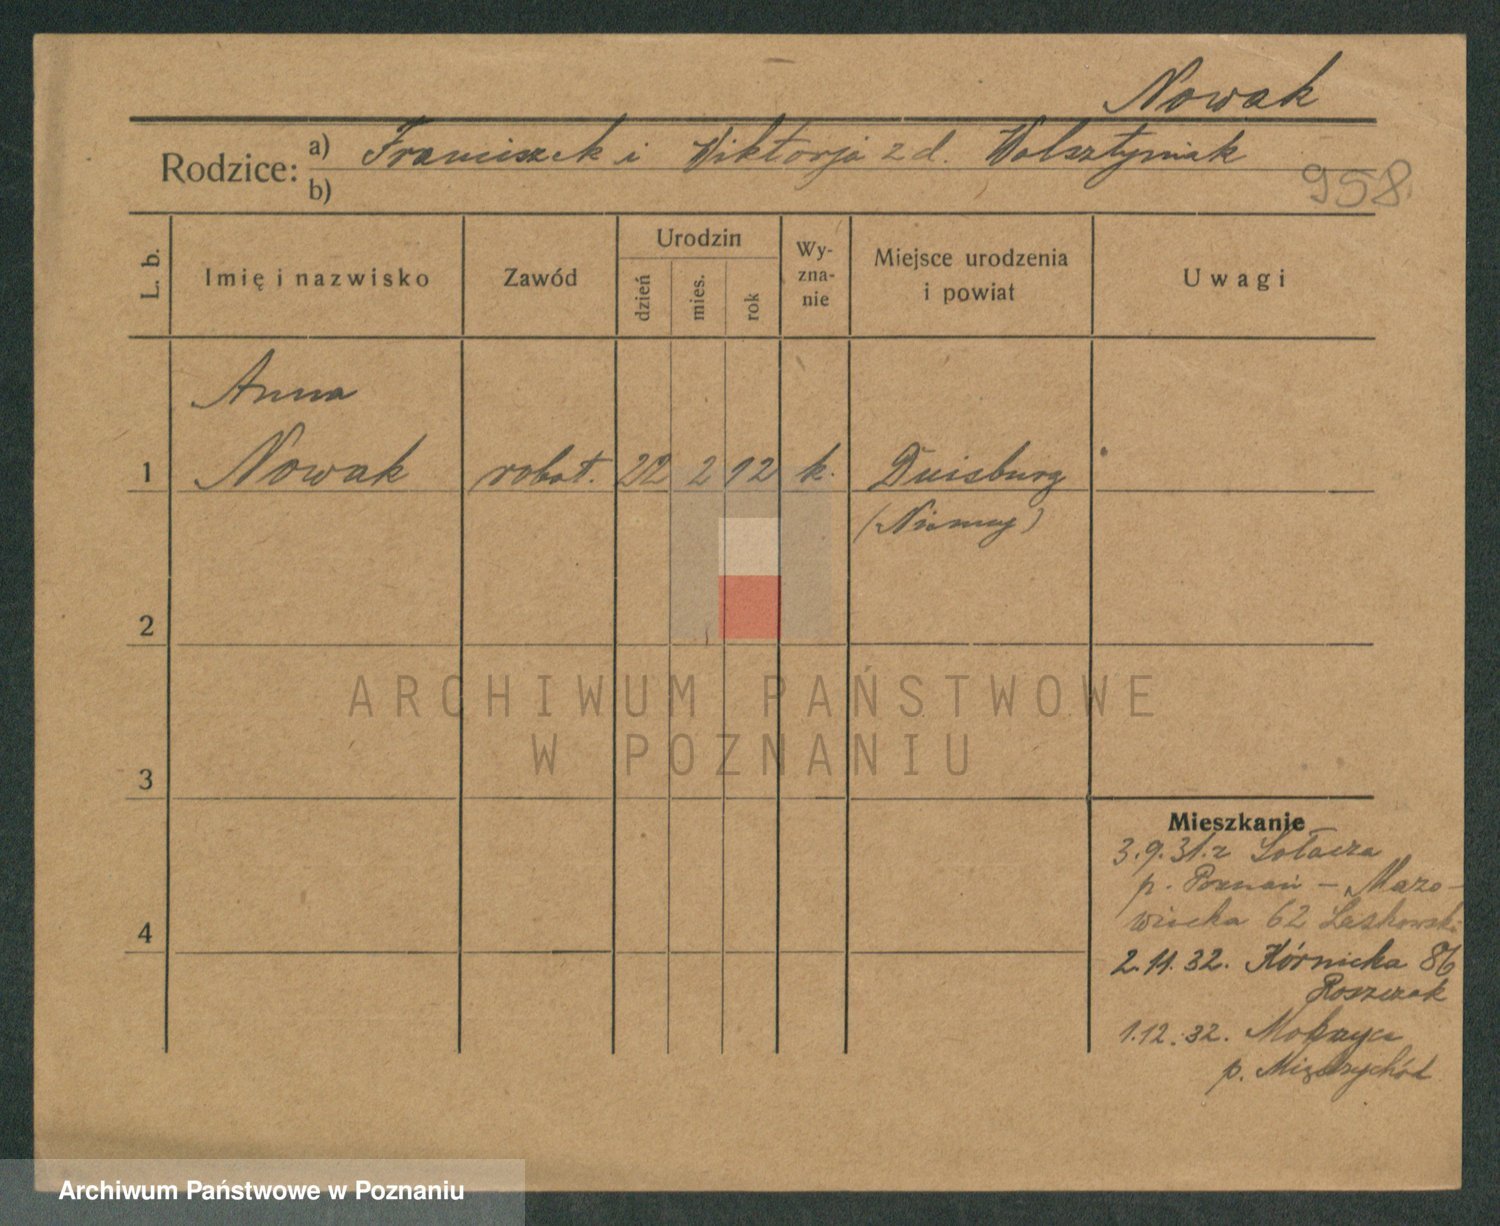 Nowak
Rodzice: a) Franciszek i Wiktorja z d. Wolsztyniak
b)
958.
L. b.
Imię i nazwisko
Zawód
Urodzin
dzień
mies.
rok
Wy-
zna-
nie
Miejsce urodzenia
i powiat
Uwagi
Anna
1 Nowak robot. 22 2 12 k. Duisburg
(Niemcy)
2
3
4
Mieszkanie
3.9.31. z Sołacza
p. Poznań - Mazo-
wiecka 62 Laskowski
2.11.32. Kórnicka 86
Roszczak
1.12.32.
p. Międzychód
ARCHIWUM PAŃSTWOWE
W POZNANIU
Archiwum Państwowe w Poznaniu